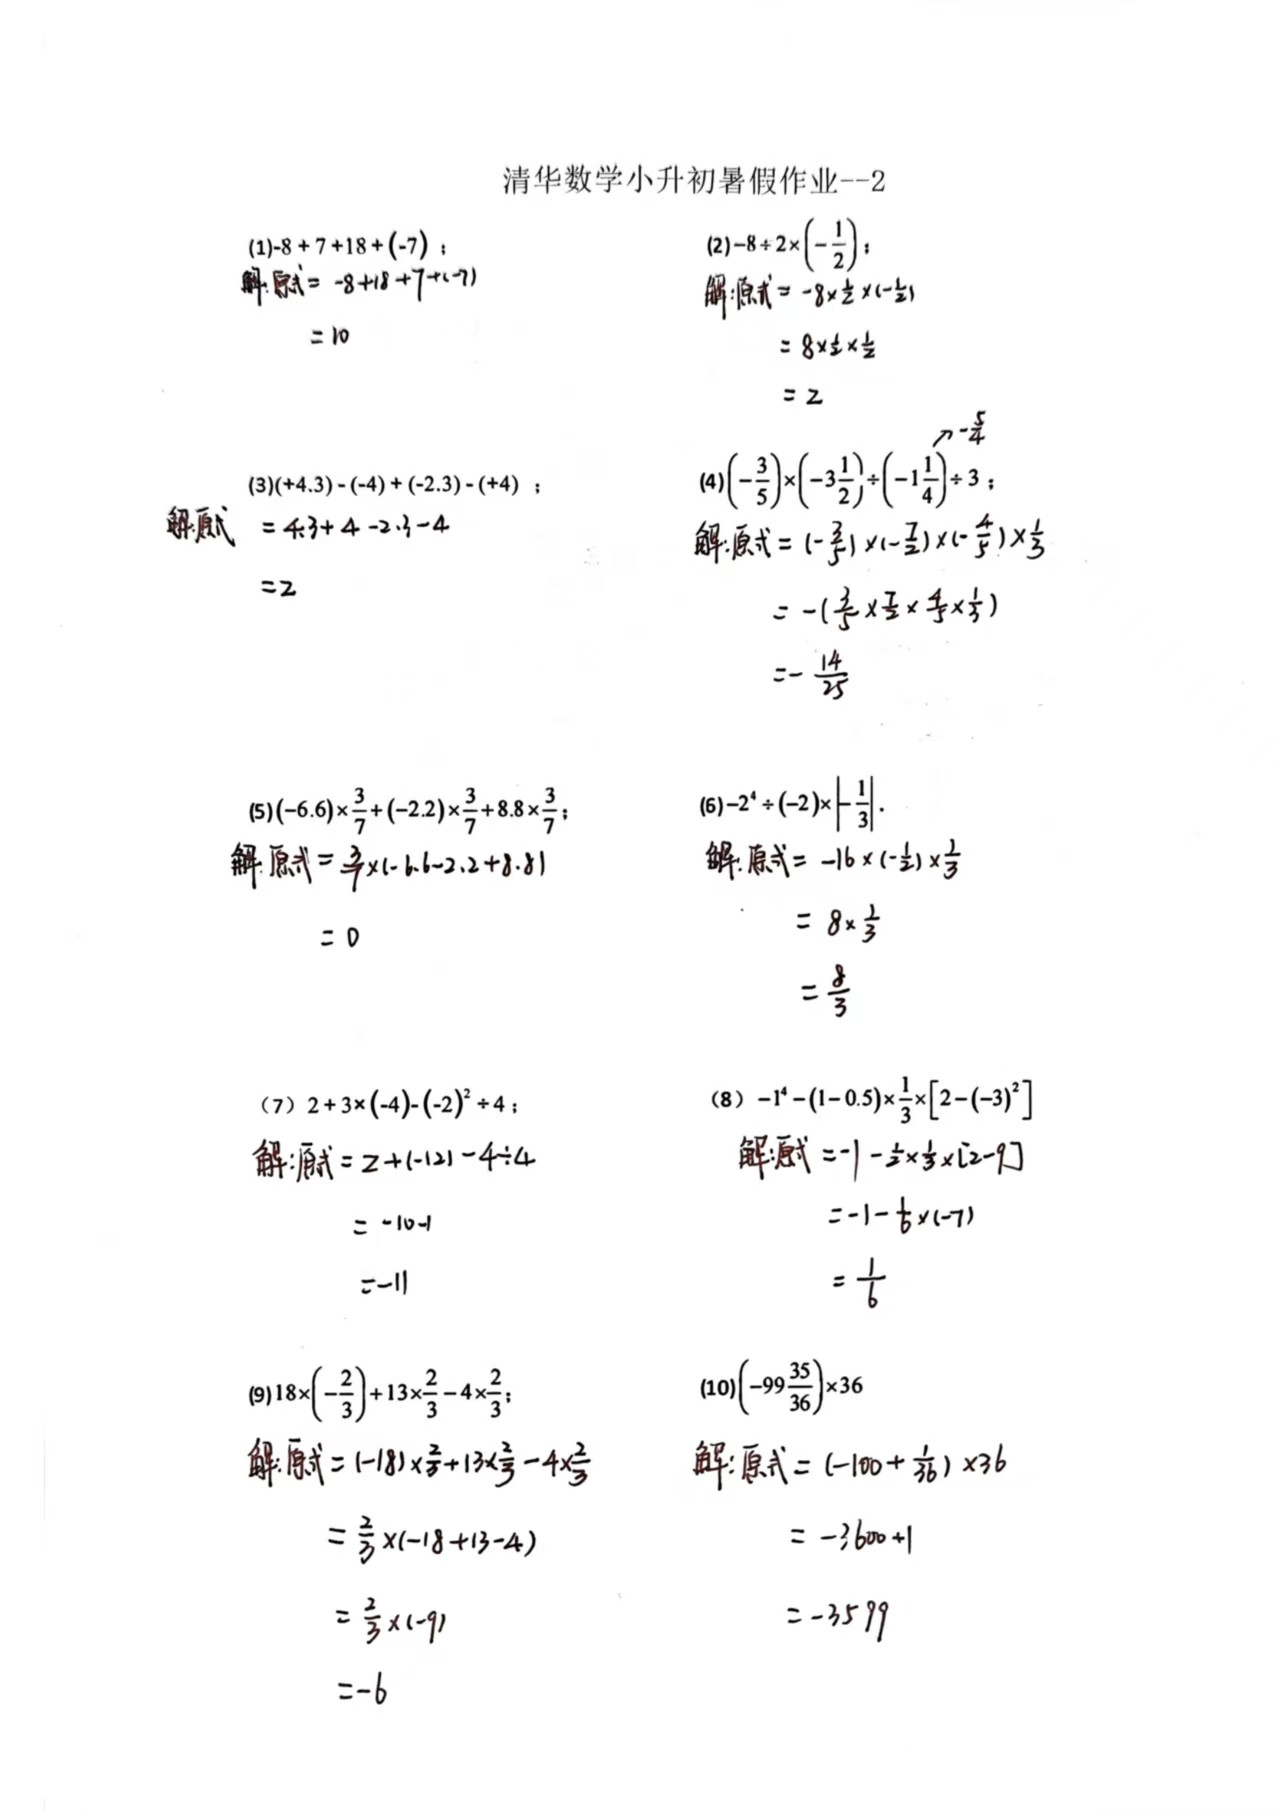 清华数学小升初暑假作业--2
(1)-8+7+18+(-7)；
解:原式= -8+18+7+(-7)
=10
(2)-8÷2×(-1/2)；
解:原式= -8×1/2×(-1/2)
= 8×1/2×1/2
= 2
(3)(+4.3)-(-4)+(-2.3)-(+4)；
解:原式 = 4.3+4-2.3-4
=2
↗-5/4
(4)(-3/5)×(-3 1/2)÷(-1 1/4)÷3；
解:原式= (-3/5)×(-7/2)×(-4/5)×1/3
= -(3/5×7/2×4/5×1/3)
=- 14/25
(5)(-6.6)×3/7+(-2.2)×3/7+8.8×3/7；
解:原式= 3/7×(-6.6-2.2+8.8)
= 0
(6)-2⁴÷(-2)×|-1/3|.
解:原式= -16×(-1/2)×1/3
= 8×1/3
= 8/3
（7）2+3×(-4)-(-2)²÷4；
解:原式= 2+(-12)-4÷4
= -10-1
=-11
（8）-1⁴-(1-0.5)×1/3×[2-(-3)²]
解:原式=-1-1/2×1/3×[2-9]
=-1-1/6×(-7)
= 1/6
(9)18×(-2/3)+13×2/3-4×2/3；
解:原式=(-18)×2/3+13×2/3-4×2/3
= 2/3×(-18+13-4)
= 2/3×(-9)
=-6
(10)(-99 35/36)×36
解:原式= (-100+1/36)×36
= -3600+1
= -3599